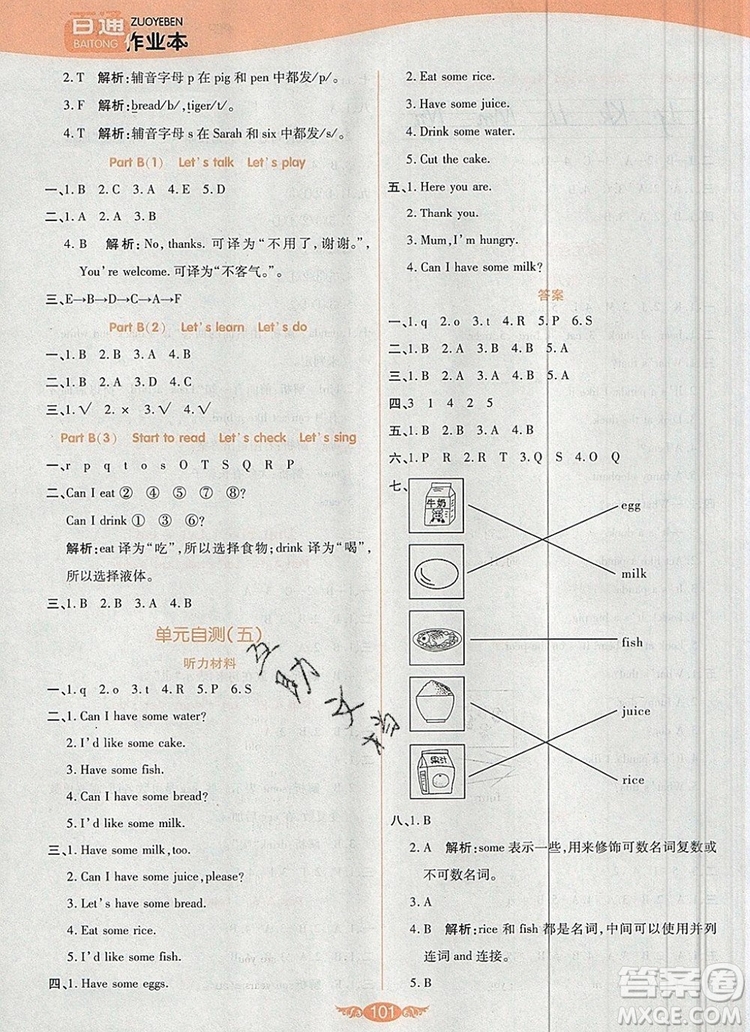 百通
BAITONG
ZUOYEBEN
作业本
2. T 解析:辅音字母 p 在 pig 和 pen 中都发/p/。
3. F 解析:bread/b/,tiger/t/。
4. T 解析:辅音字母 s 在 Sarah 和 six 中都发/s/。
Part B(1) Let's talk Let's play
一、1. B 2. C 3. A 4. E 5. D
二、1. A 2. A 3. B
4. B 解析:No, thanks. 可译为“不用了,谢谢。”,
You're welcome. 可译为“不客气。”。
三、E→B→D→C→A→F
Part B(2) Let's learn Let's do
一、1. B 2. D 3. A 4. C
二、1. B 2. B 3. A 4. A
三、1. √ 2. × 3. √ 4. √
Part B(3) Start to read Let's check Let's sing
一、r p q t o s O T S Q R P
二、Can I eat ② ④ ⑤ ⑦ ⑧?
Can I drink ① ③ ⑥?
解析:eat 译为“吃”,所以选择食物;drink 译为“喝”,
所以选择液体。
三、1. B 2. B 3. A 4. B
单元自测(五)
听力材料
一、1. q 2. o 3. t 4. R 5. P 6. S
二、1. Can I have some water?
2. I'd like some cake.
3. Have some fish.
4. Can I have some bread?
5. I'd like some milk.
三、1. Have some milk,too.
2. Can I have some juice,please?
3. Let's have some bread.
4. Eat some rice.
5. I'd like some fish.
四、1. Have some eggs.
2. Eat some rice.
3. Have some juice.
4. Drink some water.
5. Cut the cake.
五、1. Here you are.
2. Thank you.
3. Mum,I'm hungry.
4. Can I have some milk?
答案
一、1. q 2. o 3. t 4. R 5. P 6. S
二、1. B 2. A 3. A 4. B 5. A
三、1. B 2. A 3. A 4. B 5. B
四、3 1 4 2 5
五、1. B 2. A 3. B 4. A
六、1. P R 2. R T 3. Q S 4. O Q
七、
牛奶
egg
milk
fish
juice
果汁
rice
八、1. B
2. A 解析:some 表示一些,用来修饰可数名词复数或
不可数名词。
3. A
4. B 解析:rice 和 fish 都是名词,中间可以使用并列
连词 and 连接。
5. B
互助文档
101
答案圈
MXQE.COM